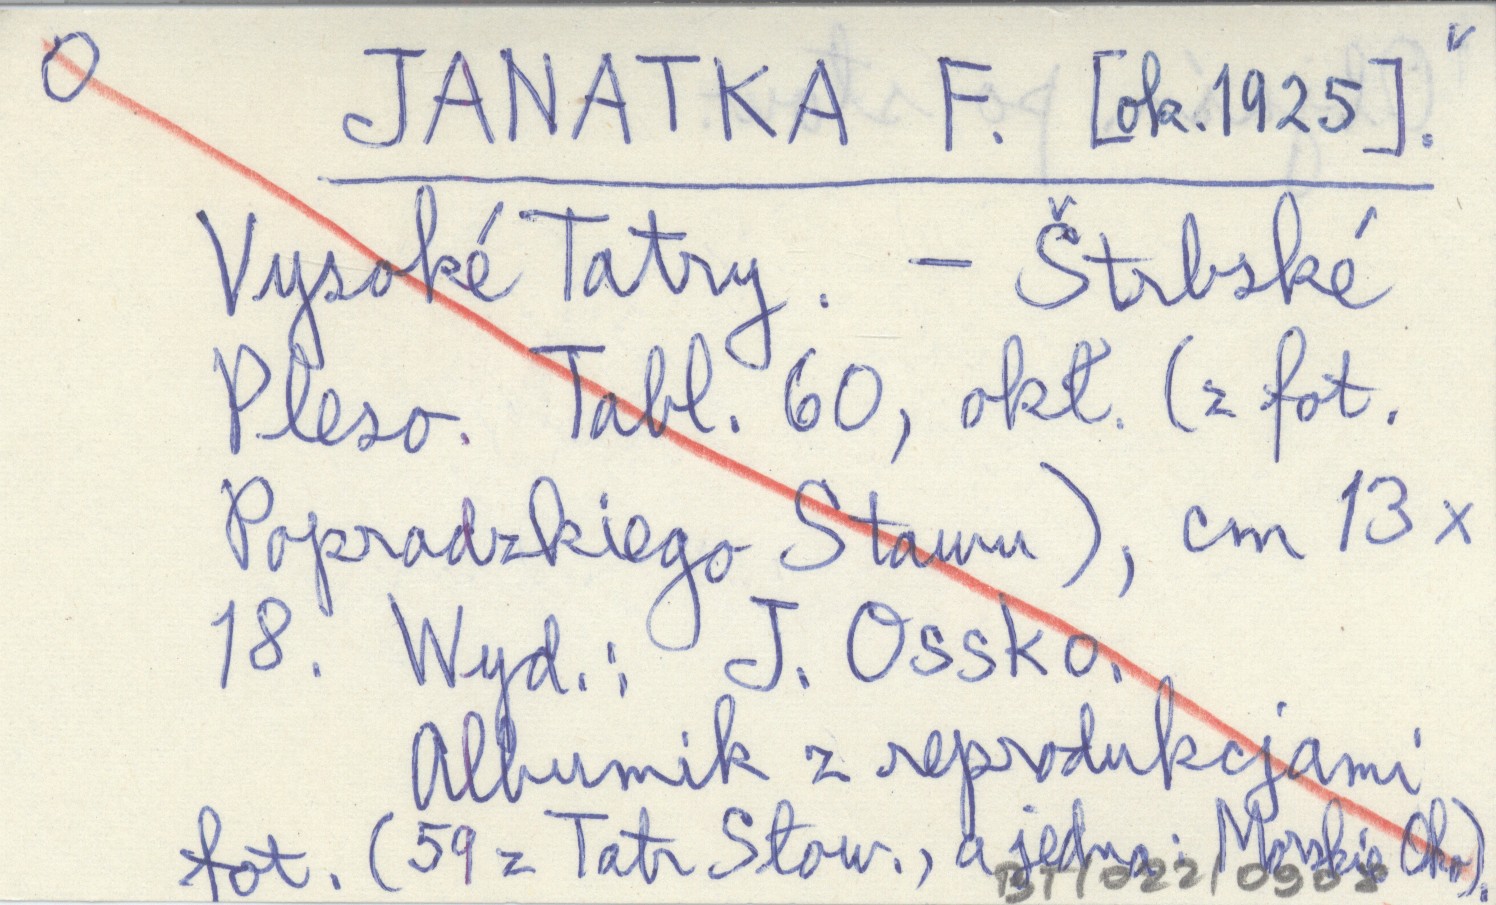 O JANATKA F. [ok. 1925]. v
Vysoké Tatry. – Štrbské
Pleso. Tabl. 60, okł. (z fot.
Popradzkiego Stawu), cm 13 x
18. Wyd.: J. Ossko.
Albumik z reprodukcjami
fot. (59 z Tatr Słow., a jedna: Morskie Oko).
BT/022/0908